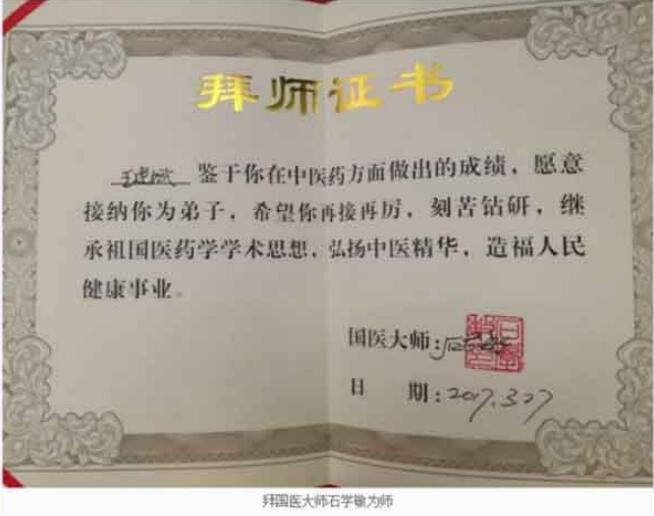 拜师证书
鉴于你在中医药方面做出的成绩，愿意
接纳你为弟子，希望你再接再厉，刻苦钻研，继
承祖国医药学学术思想，弘扬中医精华，造福人民
健康事业。
国医大师：石学敏
日　期：2017.3.27
拜国医大师石学敏为师